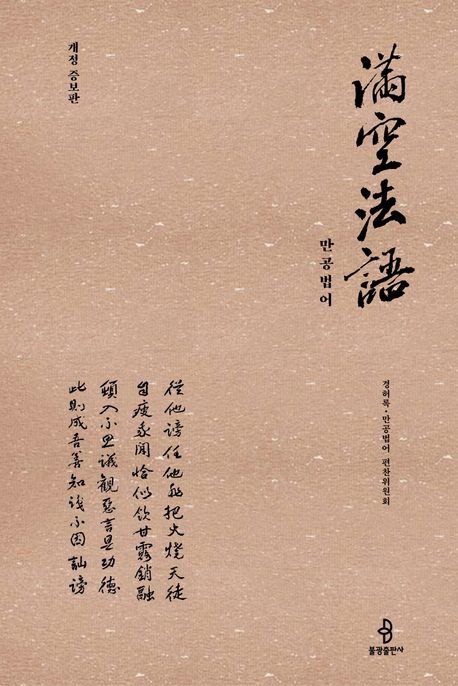 滿空法語
만공법어
경허록·만공법어 편찬위원회
개정 증보판
從他謗任他非把火燒天徒
自疲我聞恰似飮甘露銷融
頓入不思議觀惡言是功德
此則成吾善知識不因訕謗
불광출판사